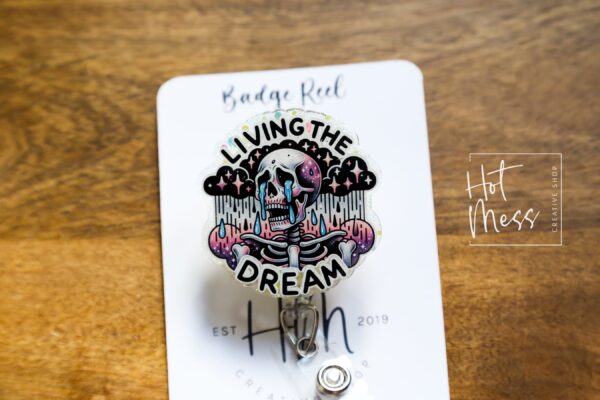 Badge Reel
LIVING THE
DREAM
EST
2019
CREATIVE SHOP
Hot
Mess
CREATIVE SHOP